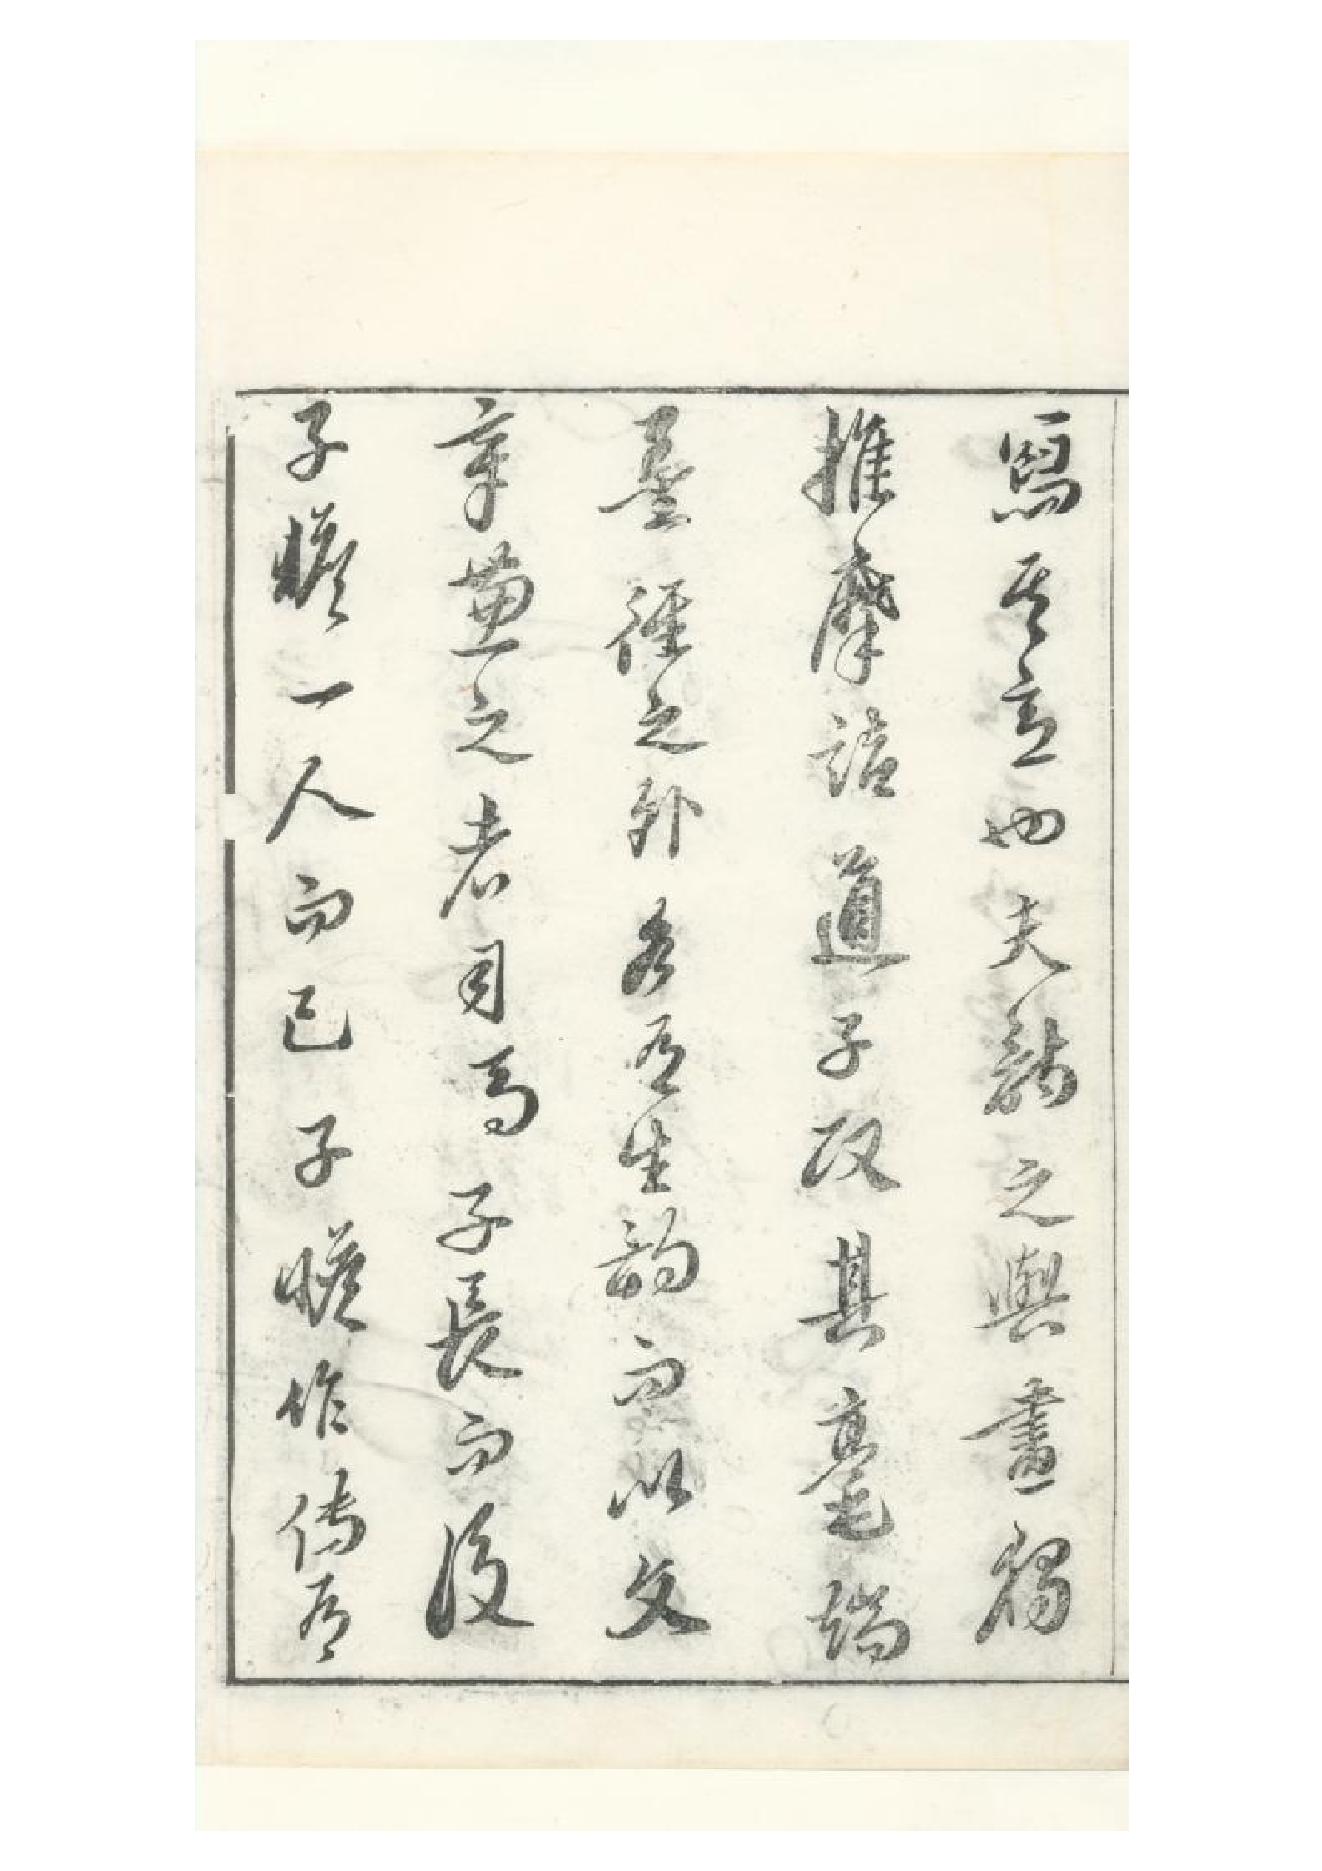 寫其意也夫詩之與畫獨
推摩詰道子攷其毫端
墨徑之外各有生韵而以文
章兼之者司馬子長而後
子瞻一人而已子瞻作傳有